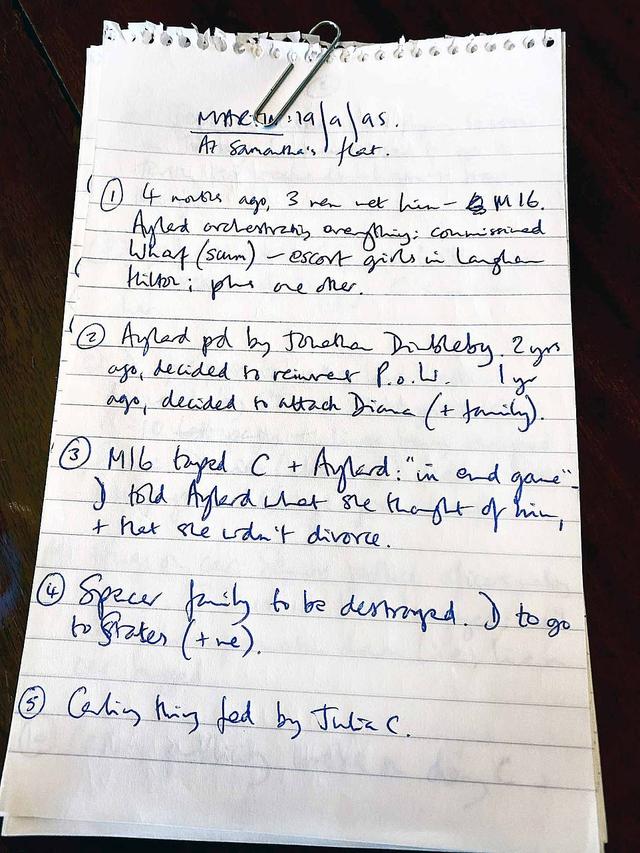 MARTIN: 19/9/95.
At Samantha's flat.
① 4 months ago, 3 men met him – MI6.
Aylard orchestrating everything; commissioned
Wharf (scum) – escort girls in Langham
Hilton; plus one other.
② Aylard pd by Jonathan Dimbleby. 2 yrs
ago, decided to reinvent P.o.W. 1 yr
ago, decided to attack Diana (+ family).
③ MI6 taped C + Aylard: "in end game"-
D told Aylard what she thought of him,
+ that she wdn't divorce.
④ Spencer family to be destroyed. D to go
to States (+ me).
⑤ Carling thing fed by Julia C.